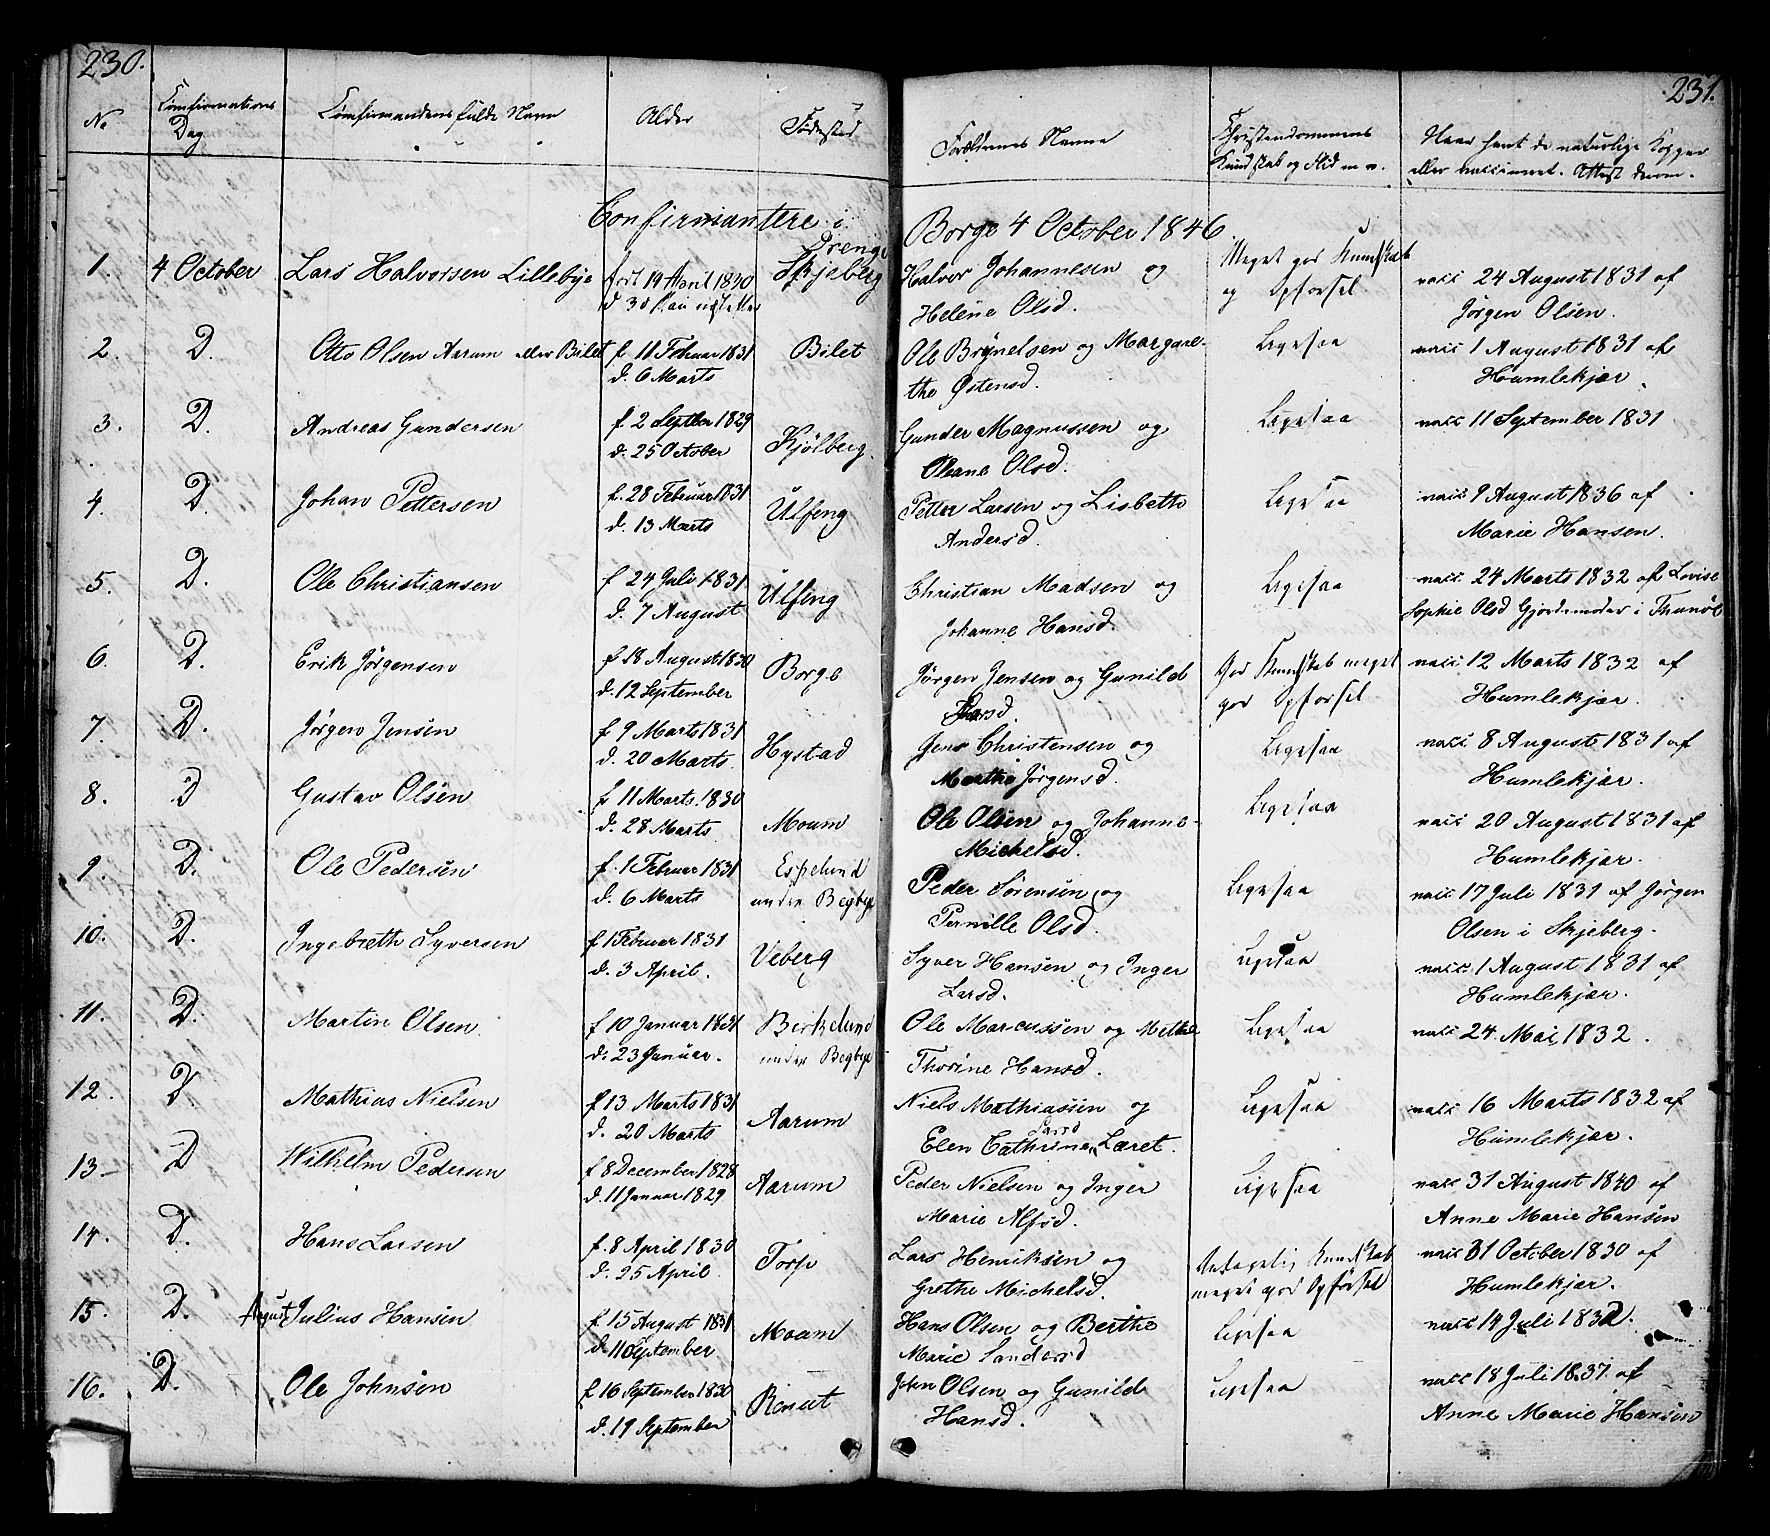 230.
231.
No
Confirmations Dag
Confirmandens fulde Navn
Alder
Fødested
Forældrenes Navne
Christendommens Kundskab og Flid m. v.
Naar havt de naturlige Kopper eller vaccineret. Attest derom.
Confirmantere i Borge 4 October 1846
Drenge
1. 4 October Lars Halvorsen Lillebye født 19 April 1830 Skjeberg Halvor Johannesen og Meget god Kundskab vacc 24 August 1831 af
d 30 Helene Olsd. og Opførsel Jørgen Olsen.
2. D. Otto Olsen Aarum eller Bilet f 11 Februar 1831 Bilet Ole Brynelsen og Margare- Ligesaa vacc 1 August 1831 af
d. 6 Marts the Østensd. Humlekjær.
3. D. Andreas Gundersen f 2 Septber 1829 Kjølberg. Gunder Magnussen og Ligesaa vacc 11 September 1831
d. 25 October Oleane Olsd.
4. D. Johan Pettersen f. 28 Februar 1831 Ulfeng Petter Larsen og Lisbeth Ligesaa vacc 9 August 1836 af
d. 13 Marts Andersd. Marie Hansen.
5. D. Ole Christiansen f 24 Juli 1831 Ulfeng Christian Madsen og Ligesaa vacc 24 Marts 1832 af Lovise
d. 7 August Johanne Hansd. Sophie Olsd Gjordemoder i Thunø
6. D. Erik Jørgensen f 18 August 1830 Borge Jørgen Jensen og Gunild God Kundskab meget vacc 12 Marts 1832 af
d. 12 September Larsd. god Opførsel Humlekjær.
7. D. Jørgen Jensen f 9 Marts 1831 Hystad Jens Christensen og Ligesaa vacc 8 August 1831 af
d. 20 Marts. Marthe Jørgensd. Humlekjær.
8. D Gustav Olsen f 11 Marts. 1830 Moum Ole Olsen og Johanne Ligesaa vacc 20 August 1831 af
d. 28 Marts Michelsd. Humlekjær.
9. D. Ole Pedersen f. 1 Februar 1831 Espelund Peder Sørensen og Ligesaa vacc 17 Juli 1831 af Jørgen
d. 6 Marts under Begbye Pernille Olsd. Olsen i Skjeberg.
10. D. Ingebreth Syversen f 1 Februar 1831 Veberg Syver Hansen og Inger Ligesaa vacc. 1 August 1831 af
d. 3 April. Larsd. Humlekjær.
11. D. Martin Olsen f 10 Januar 1831 Birkelund Ole Marcussen og Methe Ligesaa vacc 24 Mai 1832.
d. 23 Januar. under Begbye Thorine Hansd.
12. D. Mathias Nielsen f 13 Marts 1831 Aarum Niels Mathiassen og Ligesaa vacc 16 Marts 1832 af
d. 20 Marts Elen Cathrina Larsd Læret. Humlekjær.
13 D Wilhelm Pedersen f 8 December 1828 Aarum Peder Nielsen og Inger Ligesaa vacc 31 August 1840 af
d. 11 Januar 1829 Marie Alfsd. Anne Marie Hansen
14. D. Hans Larsen f. 8 April 1830 Torp Lars Henriksen og Antagelig Kundskab vacc 31 October 1830 af
d. 25 April. Grethe Michelsd. meget god Opførsel Humlekjær.
15. D. August Julius Hansen f 15 August 1831 Moum Hans Olsen og Berthe Ligesaa vacc 14 Juli 1832.
d. 11 September Marie Sandersd
16. D. Ole Johnsen f. 16 September 1830 John Olsen og Gunild Ligesaa vacc 18 Juli 1837. af
d. 19 September Hansd. Anne Marie Hansen